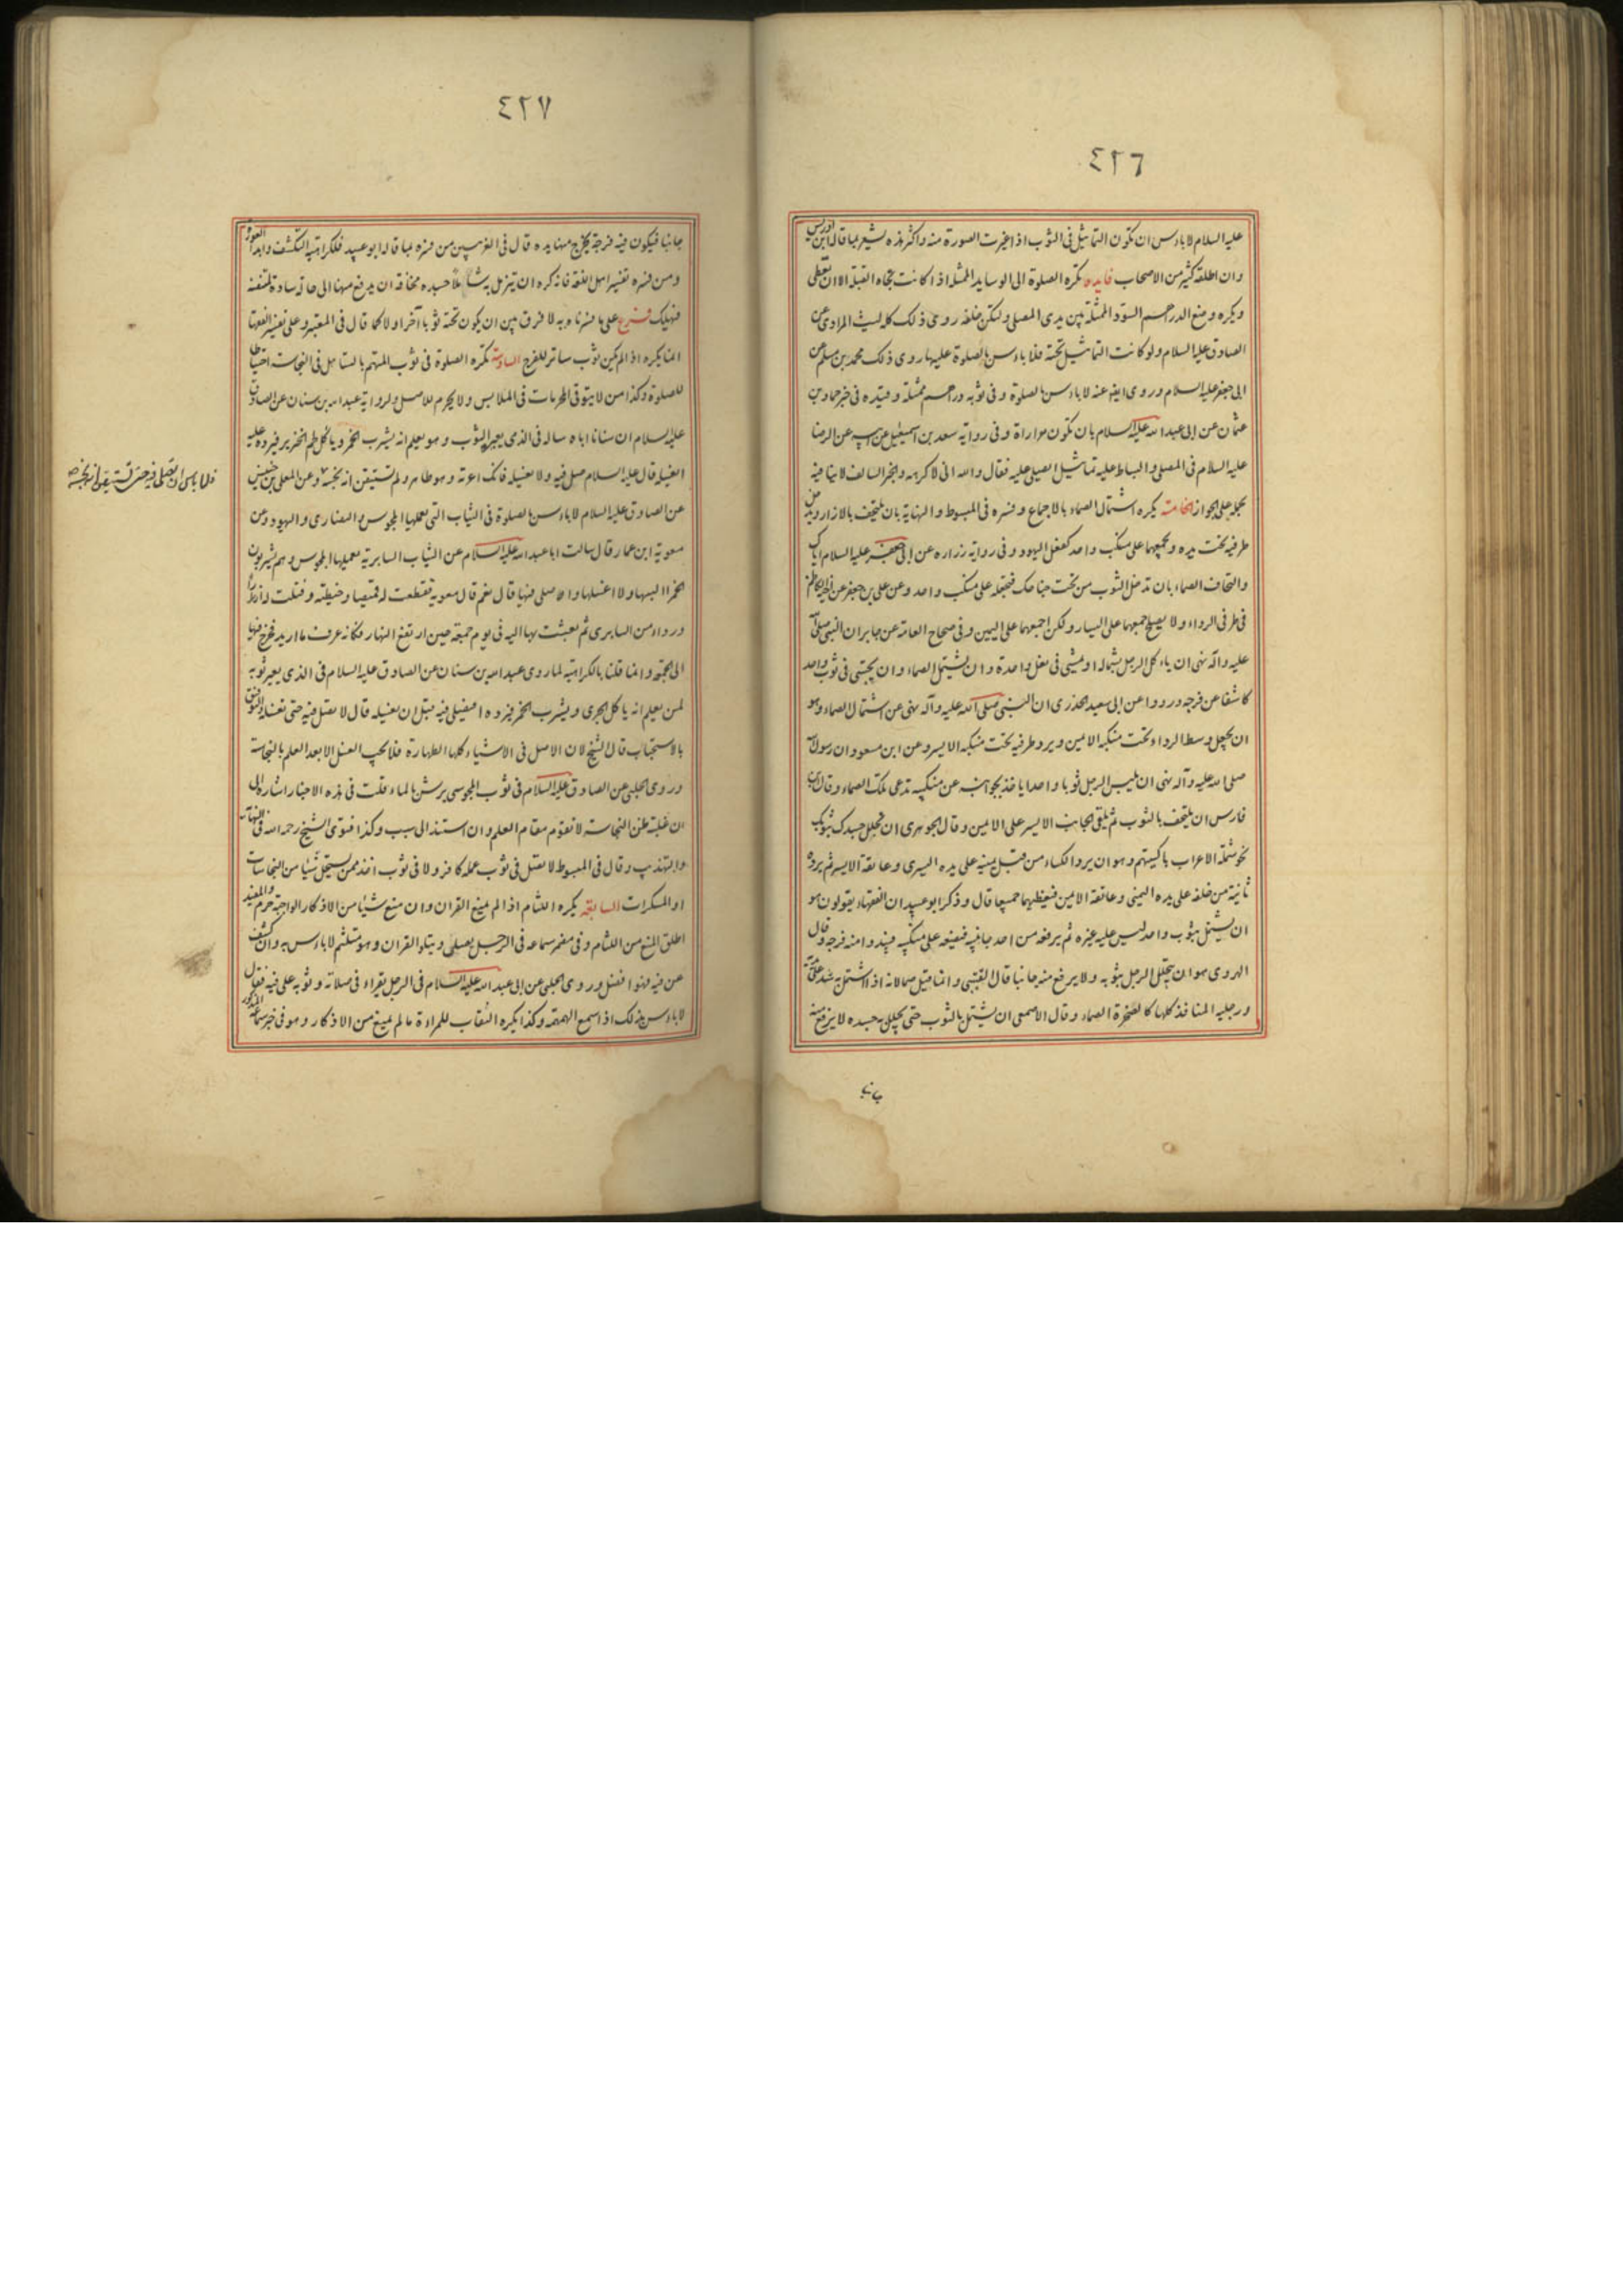 ٤٢٦
عليه السلام لا باءس ان تكون التماثيل فى الثوب اذا غيرت الصورة منه واكثر هذه يشعر بما قاله ابن ادريس
وان اطلقه كثير من الاصحاب فايده تكره الصلوة الى الوسايد الممثلة اذا كانت تجاه القبلة الا ان تغطى
ويكره وضع الدراهم السود الممثلة بين يدى المصلى ولتكن خلفه روى ذلك كله ليث المرادى عن
الصادق عليه السلام ولو كانت التماثيل تحته فلا باءس بالصلوة عليها روى ذلك محمد بن مسلم عن
ابى جعفر عليه السلام وروى ايضا عنه لا باءس بالصلوة وفى ثوبه دراهم ممثلة وقيده فى خبر حماد بن
عثمان عن ابى عبد الله عليه السلام بان تكون مواراة وفى رواية سعد بن اسمعيل عن ابيه عن الرضا
عليه السلام فى المصلى والبساط عليه تماثيل ايصلى عليه فقال والله انى لاكرهه والخبر السالف لا ينافيه
لحمله على الجواز الخامسة يكره اشتمال الصماء بالاجماع وفسره فى المبسوط والنهاية بان يلتحف بالازار ويدخل
طرفيه تحت يده ويجمعهما على منكب واحد كفعل اليهود وفى رواية زراره عن ابى جعفر عليه السلام اياك
والتحاف الصماء بان تدخل الثوب من تحت جناحك فتجعله على منكب واحد وعن على بن جعفر عن اخيه الكاظم
فى طرفى الرداء ولا يصلح جمعهما على اليسار ولكن اجمعهما على اليمين وفى صحاح العامة عن جابر ان النبى صلى الله
عليه وآله نهى ان ياءكل الرجل بشماله او يمشى فى نعل واحدة وان يشتمل الصماء وان يحتبى فى ثوب واحد
كاشفا عن فرجه ورووا عن ابى سعيد الخدرى ان النبى صلى الله عليه وآله نهى عن اشتمال الصماء وهو
ان يجعل وسط الرداء تحت منكبه الايمن ويرد طرفيه تحت منكبه الايسر وعن ابن مسعود ان رسول الله
صلى الله عليه وآله نهى ان يلبس الرجل ثوبا واحدا ياخذ بجوانبه عن منكبيه تدعى تلك الصماء وقال ابن
فارس ان يلتحف بالثوب ثم يلقى الجانب الايسر على الايمن وقال الجوهرى ان تجلل جسدك بثوبك
نحو شملة الاعراب باكسيتهم وهو ان يرد الكساء من قبل يمينه على يده اليسرى وعاتقه الايسر ثم يرده
ثانية من خلفه على يده اليمنى وعاتقه الايمن فيغطيهما جميعا قال وذكر ابو عبيد ان الفقهاء يقولون هو
ان يشتمل بثوب واحد ليس عليه غيره ثم يرفعه من احد جانبيه فيضعه على منكبيه فيبدوا منه فرجه وقال
الهروى هو ان يتجلل الرجل بثوبه ولا يرفع منه جانبا قال القتيبى وانما قيل صما لانه اذا اشتمل به شد على يديه
ورجليه المنافذ كلها كالصخرة الصماء وقال الاصمعى ان يشتمل بالثوب حتى يجلل به جسده لا يرفع منه
جانبا
٤٢٧
جانبا فيكون فيه فرجة يخرج منها يده قال فى الغريبين من فسره بما قاله ابو عبيد فلكراهية التكشف وابداء العورة
ومن فسره تفسير اهل اللغة فانه كره ان يتزمل به شاملا جسده مخافة ان يدفع منها الى حالة سادة لمتنفسه
فيهلك فرع على ما فسرناه به لا فرق بين ان يكون تحته ثوبا آخر او لا كما قال فى المعتبر وعلى تفسير الفقها
انما يكره اذا لم يكن ثوب ساتر للفرج السادسة تكره الصلوة فى ثوب المتهم بالتساهل فى النجاسة احتياطا
للصلوة وكذا من لا يتوقى المحرمات فى الملابس ولا يحرم للاصل ولرواية عبد الله بن سنان عن الصادق
عليه السلام ان سنانا اباه ساله فى الذمى يعير الثوب وهو يعلم انه يشرب الخمر وياكل لحم الخنزير فيرده عليه
ايغسله قال عليه السلام صل فيه ولا تغسله فانك اعرته وهو طاهر ولم تستيقن انه نجسه وعن المعلى بن خنيس
فلا باس ان تصلى فيه حتى تستيقن انه نجسه صح
عن الصادق عليه السلام لا باءس بالصلوة فى الثياب التى يعملها المجوس والنصارى واليهود وعن
معوية ابن عمار قال سالت ابا عبد الله عليه السلام عن الثياب السابرية يعملها المجوس وهم يشربون
الخمر البسها ولا اغسلها واصلى فيها قال نعم قال معوية فقطعت له قميصا وخيطته وفتلت له ازرارا
ورداء من السابرى ثم بعثت بها اليه فى يوم جمعة حين ارتفع النهار فكانه عرف ما اريد فخرج فيها
الى الجمعة وانما قلنا بالكراهية لما روى عبد الله بن سنان عن الصادق عليه السلام فى الذى يعير ثوبه
لمن يعلم انه ياكل الجرى ويشرب الخمر فيرده ايصلى فيه قبل ان يغسله قال لا يصل فيه حتى يغسله والتوفيق
بالاستحباب قال الشيخ لان الاصل فى الاشياء كلها الطهارة فلا يجب الغسل الا بعد العلم بالنجاسة
وروى الحلبى عن الصادق عليه السلام فى ثوب المجوسى يرش بالماء قلت فى هذه الاخبار اشارة الى
ان غلبة ظن النجاسة لا تقوم مقام العلم وان استند الى سبب وكذا فتوى الشيخ رحمه الله فى النهاية
والتهذيب وقال فى المبسوط لا يصل فى ثوب عمله كافر ولا فى ثوب اخذ ممن يستحل شيئا من النجاسات
او المسكرات السابعة يكره اللثام اذا لم يمنع القران وان منع شيئا من الاذكار الواجبة حرم والمفيد
اطلق المنع من اللثام وفى مضمر سماعه فى الرجل يصلى ويتلو القران وهو متلثم لا باءس به وان كشف
عن فيه فهو افضل وروى الحلبى عن ابى عبد الله عليه السلام فى الرجل يقراء فى صلاته وثوبه على فيه فقال
لا باءس بذلك اذا اسمع الهمهمة وكذا يكره النقاب للمراءة ما لم يمنع من الاذكار وهو فى خبر سماعة المذكور